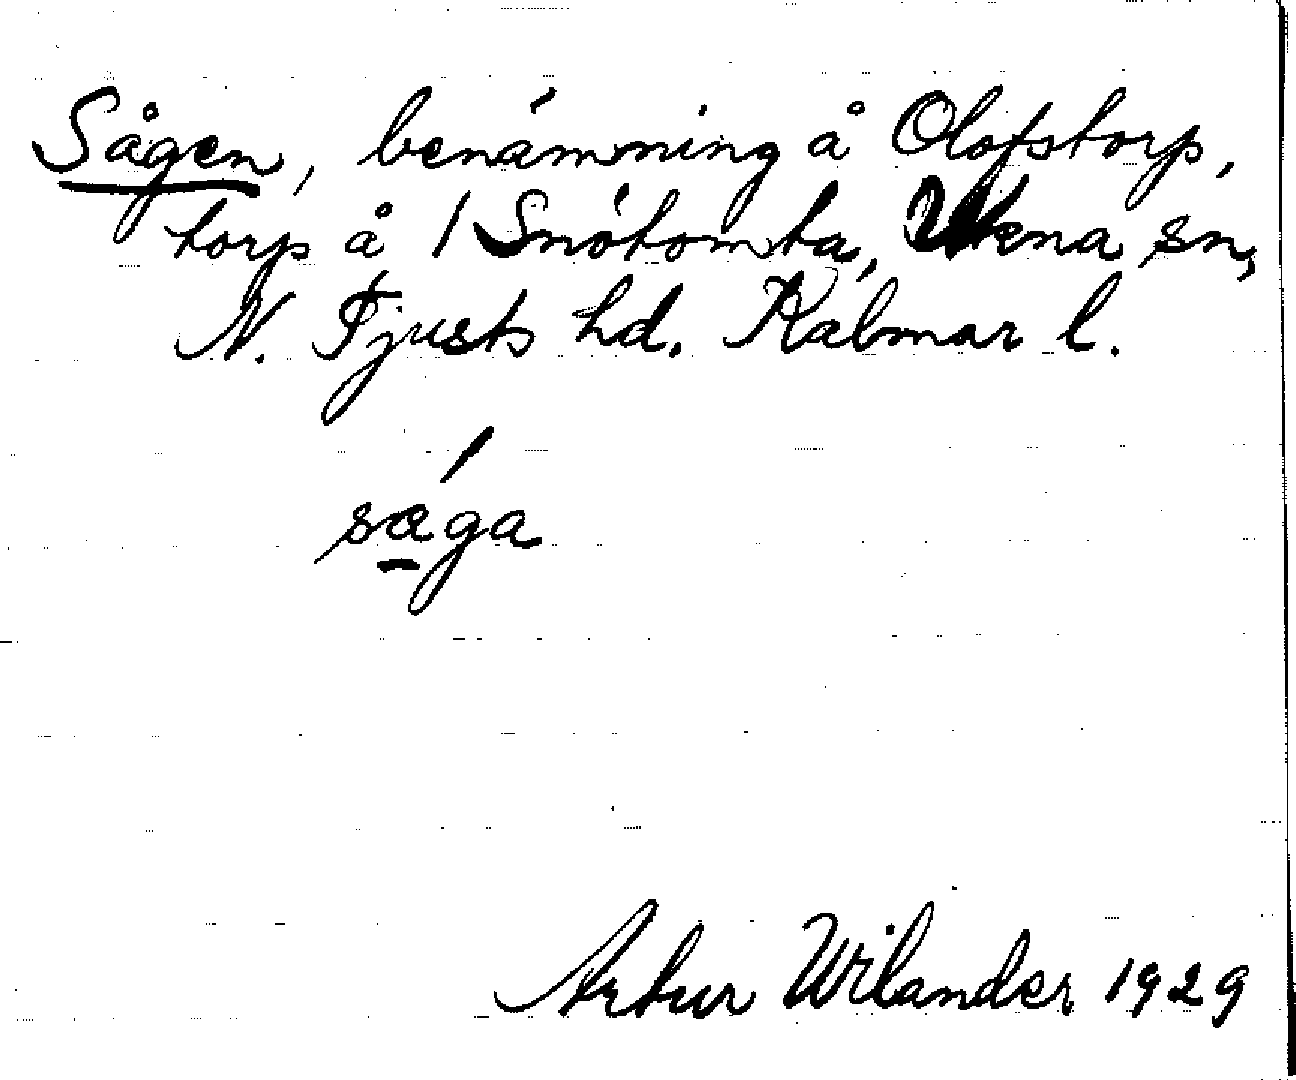 Sågen, benämning å Olofstorp,
torp å 1 Snötomta, Ukna sn,
N. Tjusts hd. Kalmar l.
såga
Artur Wilander 1929